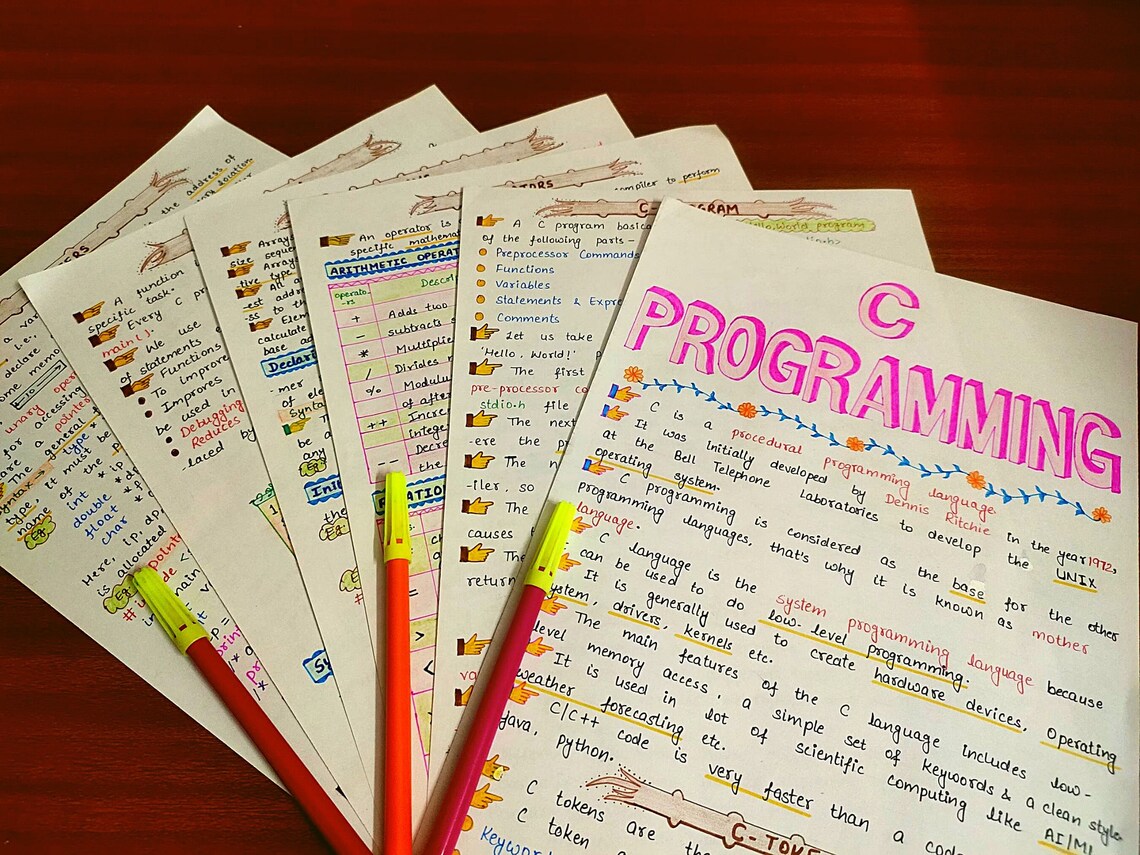 C
PROGRAMMING
C is a procedural programming language
It was initially developed by Dennis Ritchie in the year 1972,
at the Bell Telephone Laboratories to develop the UNIX
operating system.
C programming is considered as the base for the other
programming languages, that's why it is known as mother
language.
C language is the system programming language because
it can be used to do low-level programming.
It is generally used to create hardware devices, Operating
system, drivers, kernels etc.
The main features of the C language includes low-
level memory access, a simple set of keywords & a clean style
It is used in lot of scientific computing like AI/ML
weather forecasting etc.
C/C++ code is very faster than a
Java, Python.
C-TOKE
C tokens are the
C token
Keywor
C- GRAM
Hello, World program
compiler to perform
A C program basica
of the following parts-
Preprocessor Commands
Functions
Variables
Statements & Expre
Comments
Let us take
'Hello, World!' P
The first
pre-processor co
stdio.h file
The next
-ere the
The n
-iler, so
The
causes
The
return
TORS
An operator is
specific mathema
ARITHMETIC OPERAT
Operato-
-rs
Descri
+ Adds two
- subtracts
* Multiplie
/ Divides
% Modulu
of after
++ Incre
intege
-- Decre
the
ATION
=
>
<
Array
size seque
Array
-tive type.
An a
-est addr
-ss to th
Elem
calculate
base ad
Declari
-mer
of ele
Synta
Th
be a
any
Eg
Ini
the
Eg
Sy
A function
specific task.
Every C pr
main().
We use
of statements
Functions
To improve
Improves
be used in
Debugging
Reduces
-laced by
ERS
the address of
location
a var
i.e.,
declare
ome memo
unary oper
for accessing
pointer
are general f
The
syntax
type, it must be
name of the p
Eg
int *ip
double *d
float *f
char
Here, ip, dp,
is allocated
Eg
pointe
main
print